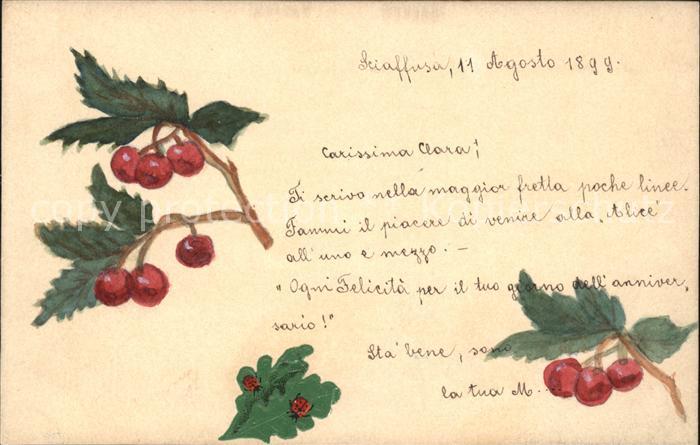 Sciaffusa, 11 Agosto 1899.
Carissima Clara!
Ti scrivo nella maggior fretta poche linee.
Fammi il piacere di venire alla "Alice"
all' uno e mezzo. —
"Ogni Felicità per il tuo giorno dell'anniver,
sario!"
Sta' bene, sono
la tua M...
copy protection Kopierschutz